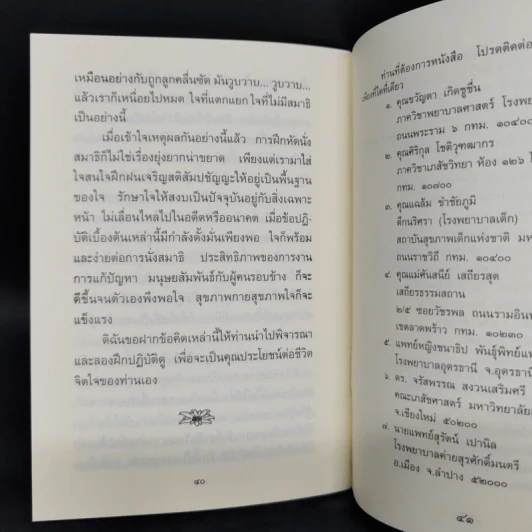 เหมือนอย่างกับถูกลูกคลื่นซัด มันวูบวาบ... วูบวาบ...
แล้วเราก็เหนื่อยไปหมด ใจที่แตกแยก ใจที่ไม่มีสมาธิ
เป็นอย่างนี้
เมื่อเข้าใจเหตุผลกันอย่างนี้แล้ว การฝึกหัดนั่ง
สมาธิก็ไม่ใช่เรื่องยุ่งยากน่าขยาด เพียงแต่เรามาใส่
ใจสนใจฝึกฝนเจริญสติสัมปชัญญะให้อยู่เป็นพื้นฐาน
ของใจ รักษาใจให้สงบเป็นปัจจุบันอยู่กับสิ่งเฉพาะ
หน้า ไม่เลื่อนไหลไปในอดีตหรืออนาคต เมื่อข้อปฏิ-
บัติเบื้องต้นเหล่านี้มีกำลังตั้งมั่นเพียงพอ ใจก็พร้อม
และง่ายต่อการนั่งสมาธิ ประสิทธิภาพของการงาน
การแก้ปัญหา มนุษยสัมพันธ์กับผู้คนรอบข้าง ก็จะ
ดีขึ้นจนตัวเองพึงพอใจ สุขภาพกายสุขภาพใจก็จะ
แข็งแรง
ดิฉันขอฝากข้อคิดเหล่านี้ให้ท่านนำไปพิจารณา
และลองฝึกปฏิบัติดู เพื่อจะเป็นคุณประโยชน์ต่อชีวิต
จิตใจของท่านเอง
๔๐
ท่านที่ต้องการหนังสือ โปรดติดต่อ
เพียงที่ใดที่เดียว
๑. คุณขวัญตา เกิดชูชื่น
ภาควิชาพยาบาลศาสตร์ โรงพย
ถนนพระราม ๖ กทม. ๑๐๔๐๐
๒. คุณศิริกุล โชติวุฑฒากร
ภาควิชาเภสัชวิทยา ห้อง ๑๒๖ โ
กทม. ๑๐๗๐๐
๓. คุณแฉล้ม ขำชัยภูมิ
ตึกนริศรา (โรงพยาบาลเด็ก)
สถาบันสุขภาพเด็กแห่งชาติ มห
ถนนราชวิถี กทม. ๑๐๔๐๐
๔. คุณแม่ศันสนีย์ เสถียรสุต
เสถียรธรรมสถาน
๒/๕ ซอยวัชรพล ถนนรามอินท
เขตลาดพร้าว กทม. ๑๐๒๓๐
๕. แพทย์หญิงชนาธิป พันธุ์พิทย์แพ
โรงพยาบาลอุดรธานี จ.อุดรธานี
๖. ดร. จรัสพรรณ สงวนเสริมศรี
คณะเภสัชศาสตร์ มหาวิทยาลัย
จ.เชียงใหม่ ๕๐๒๐๐
๗. นายแพทย์สุรัตน์ เปานิล
โรงพยาบาลค่ายสุรศักดิ์มนตรี
อ.เมือง จ.ลำปาง ๕๒๐๐๐
๔๑